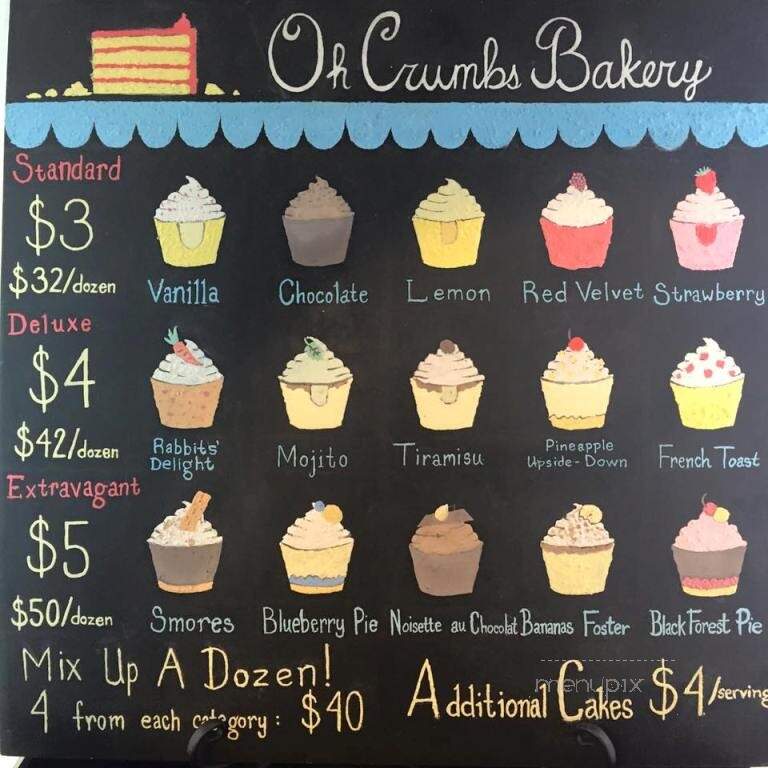 Oh Crumbs Bakery
Standard
$3
$32/dozen
Vanilla
Chocolate
Lemon
Red Velvet
Strawberry
Deluxe
$4
$42/dozen
Rabbits'
Delight
Mojito
Tiramisu
Pineapple
Upside-Down
French Toast
Extravagant
$5
$50/dozen
Smores
Blueberry Pie
Noisette au Chocolat
Bananas Foster
Black Forest Pie
Mix Up A Dozen!
4 from each category: $40
Additional Cakes $4/serving
menupix